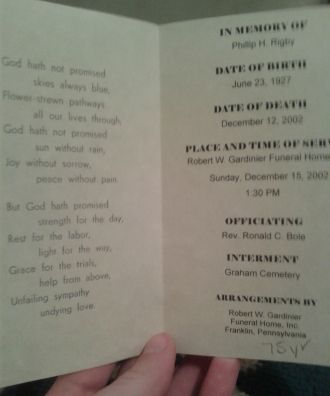 God hath not promised
skies always blue,
Flower-strewn pathways
all our lives through,
God hath not promised
sun without rain,
Joy without sorrow,
peace without pain.
But God hath promised
strength for the day,
Rest for the labor,
light for the way,
Grace for the trials,
help from above,
Unfailing sympathy
undying love.
IN MEMORY OF
Phillip H. Rigby
DATE OF BIRTH
June 23, 1927
DATE OF DEATH
December 12, 2002
PLACE AND TIME OF SERV
Robert W. Gardinier Funeral Home
Sunday, December 15, 2002
1:30 PM
OFFICIATING
Rev. Ronald C. Bole
INTERMENT
Graham Cemetery
ARRANGEMENTS BY
Robert W. Gardinier
Funeral Home, Inc.
Franklin, Pennsylvania
75 yr